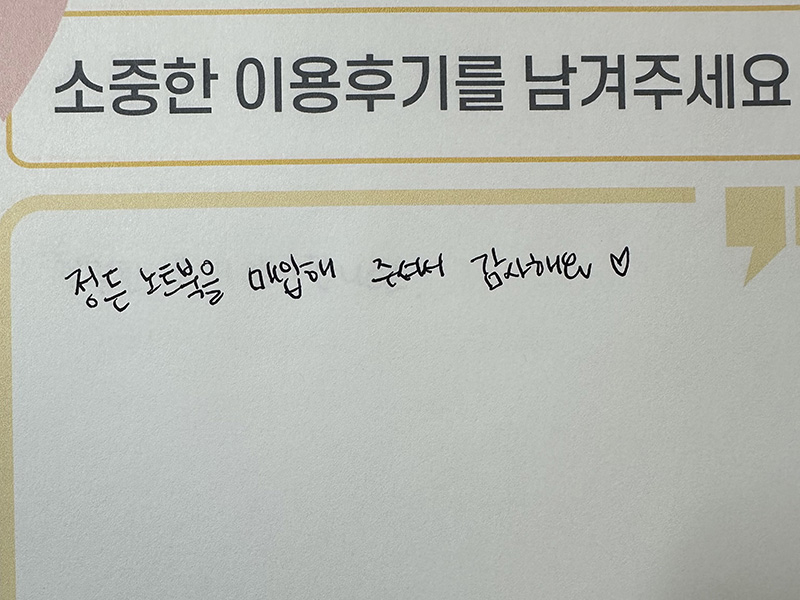 소중한 이용후기를 남겨주세요
정든 노트북을 매입해 주셔서 감사해요 ♡